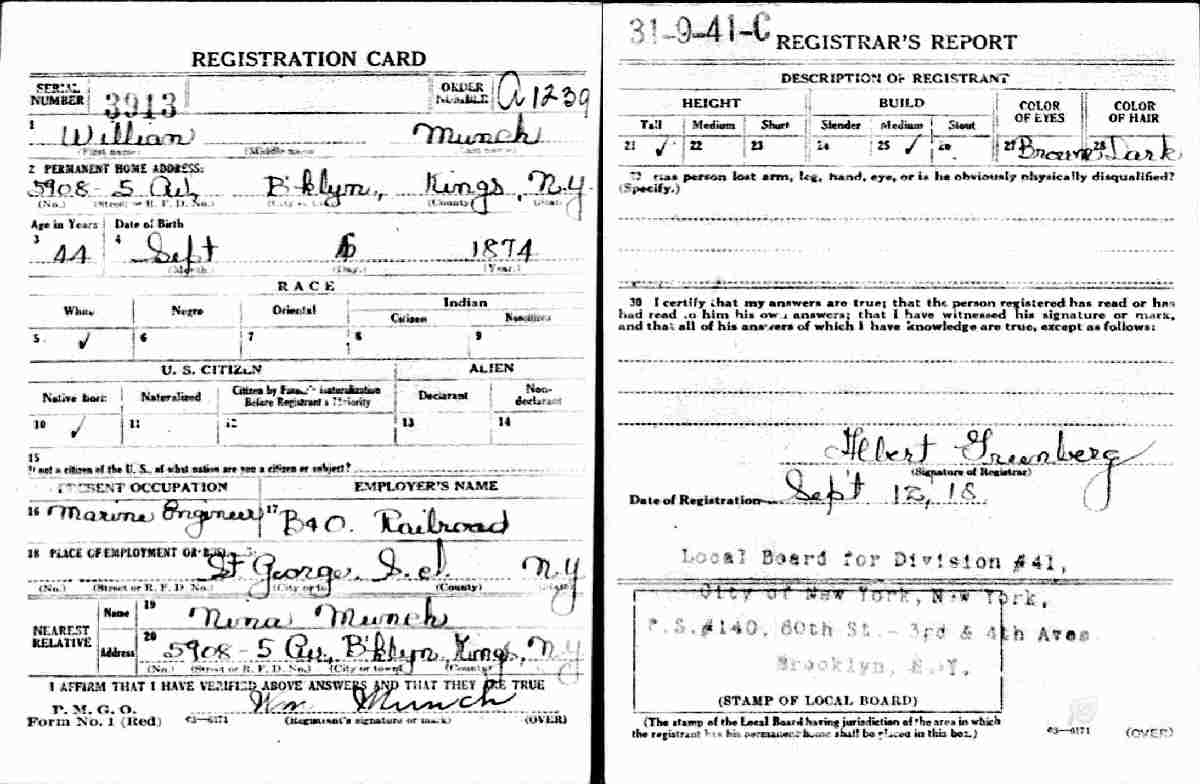 REGISTRATION CARD
SERIAL NUMBER 3913 ORDER NUMBER A 1239
1 William Munch
(First name) (Middle name) (Last name)
2 PERMANENT HOME ADDRESS:
5908 - 5 Av. B'klyn, Kings, N.Y.
(No.) (Street or R. F. D. No.) (City or town) (County) (State)
Age in Years Date of Birth
3 44 4 Sept 1874
(Month.) (Day.) (Year.)
RACE
White Negro Oriental Indian
Citizen Noncitizen
5 ✓ 6 7 8 9
U. S. CITIZEN ALIEN
Native born Naturalized Citizen by Father's Naturalization Before Registrant's Majority Declarant Non-declarant
10 ✓ 11 12 13 14
15
If not a citizen of the U. S., of what nation are you a citizen or subject?
PRESENT OCCUPATION EMPLOYER'S NAME
16 Marine Engineer 17 B & O. Railroad
18 PLACE OF EMPLOYMENT OR BUSINESS:
St George, S.I. N.Y
(No.) (Street or R. F. D. No.) (City or town) (County) (State)
NEAREST RELATIVE
Name 19 Nina Munch
Address 20 5908 - 5 Av. B'klyn, Kings, N.Y
(No.) (Street or R. F. D. No.) (City or town) (County) (State)
I AFFIRM THAT I HAVE VERIFIED ABOVE ANSWERS AND THAT THEY ARE TRUE
P. M. G. O.
Form No. 1 (Red) 03—6171 Wm Munch
(Registrant's signature or mark) (OVER)
31-9-41-C REGISTRAR'S REPORT
DESCRIPTION OF REGISTRANT
HEIGHT BUILD COLOR OF EYES COLOR OF HAIR
Tall Medium Short Slender Medium Stout
21 ✓ 22 23 24 25 ✓ 26 27 Brown 28 Dark
29 Has person lost arm, leg, hand, eye, or is he obviously physically disqualified?
(Specify.)
30 I certify that my answers are true; that the person registered has read or has
had read to him his own answers; that I have witnessed his signature or mark,
and that all of his answers of which I have knowledge are true, except as follows:
Albert Greenberg
(Signature of Registrar)
Date of Registration Sept 12, 18
Local Board for Division #41,
City of New York, New York,
P.S.#140, 60th St.- 3rd & 4th Aves
Brooklyn, N.Y.
(STAMP OF LOCAL BOARD)
(The stamp of the Local Board having jurisdiction of the area in which
the registrant has his permanent home shall be placed in this box.)
03—6171 (OVER)